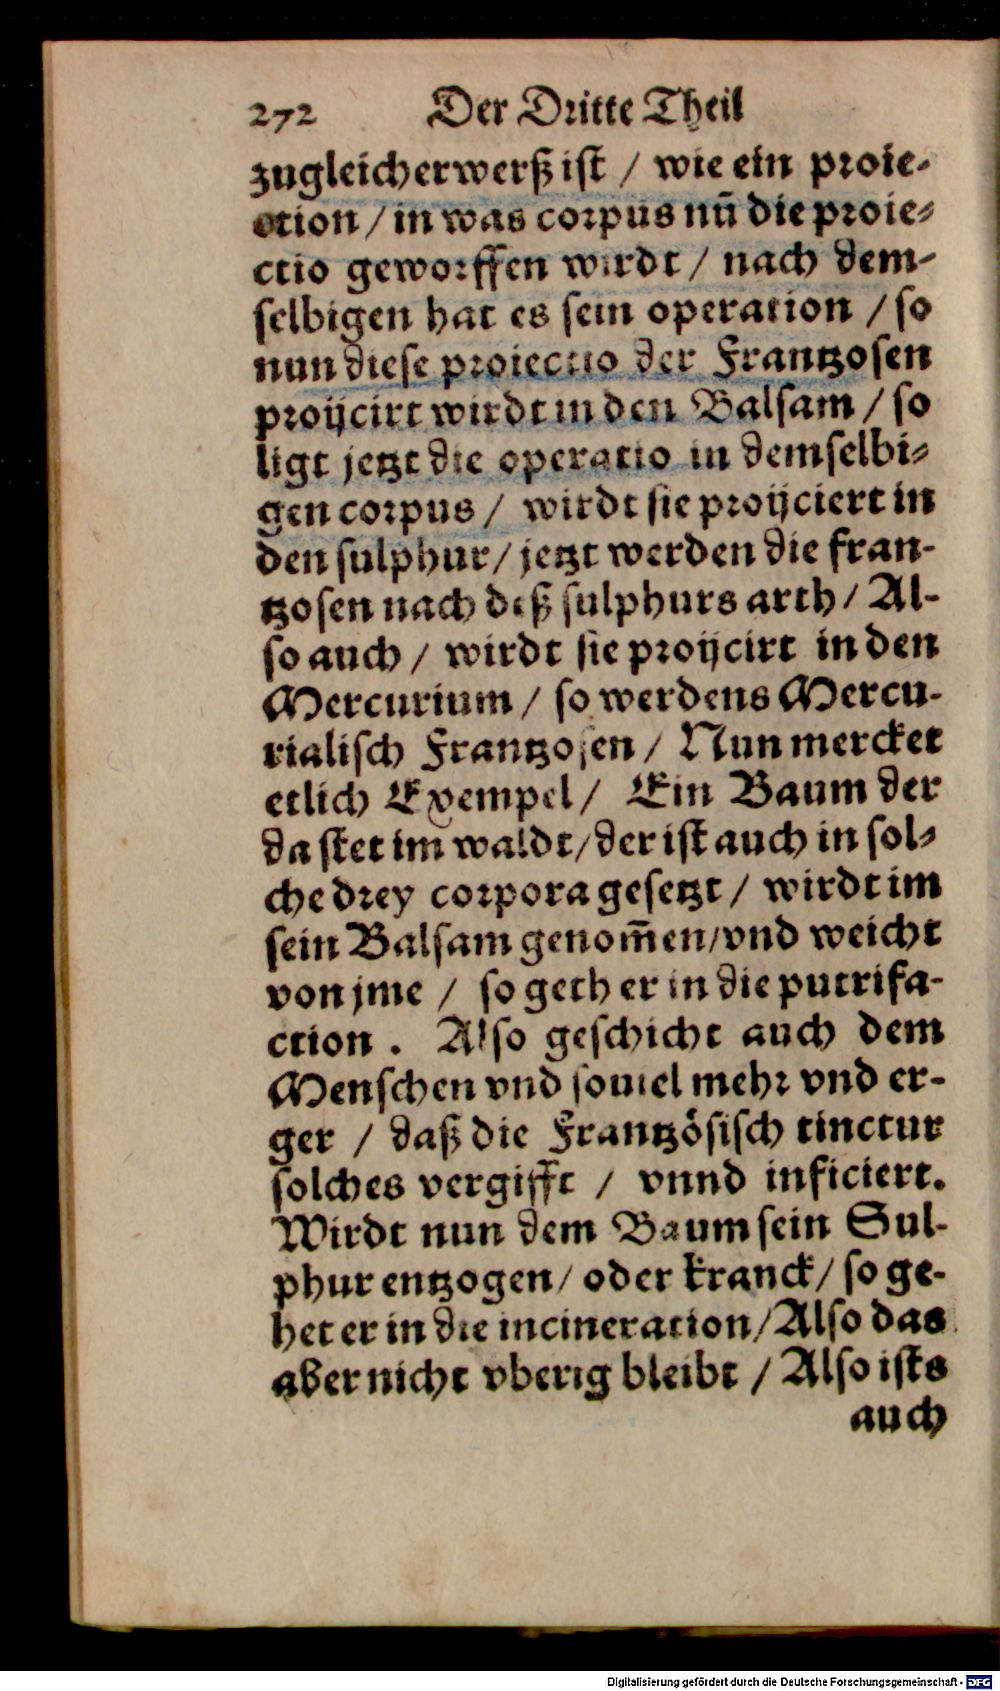 272 Der Dritte Theil
zugleicherwerß ist / wie ein proie-
ction / in was corpus nū die proie-
ctio geworffen wirdt / nach dem-
selbigen hat es sein operation / so
nun diese proiectio der Frantzosen
proijcirt wirdt in den Balsam / so
ligt jetzt die operatio in demselbi-
gen corpus / wirdt sie proijciert in
den sulphur / jetzt werden die fran-
tzosen nach deß sulphurs arth / Al-
so auch / wirdt sie proijcirt in den
Mercurium / so werdens Mercu-
rialisch Frantzosen / Nun mercket
etlich Exempel / Ein Baum der
da stet im waldt / der ist auch in sol-
che drey corpora gesetzt / wirdt im
sein Balsam genom̄en / vnd weicht
von jme / so geth er in die putrifa-
ction . Also geschicht auch dem
Menschen vnd souiel mehr vnd er-
ger / daß die Frantzösisch tinctur
solches vergifft / vnnd inficiert.
Wirdt nun dem Baum sein Sul-
phur entzogen / oder kranck / so ge-
het er in die incineration / Also das
aber nicht vberig bleibt / Also ists
auch
Digitalisierung gefördert durch die Deutsche Forschungsgemeinschaft - DFG